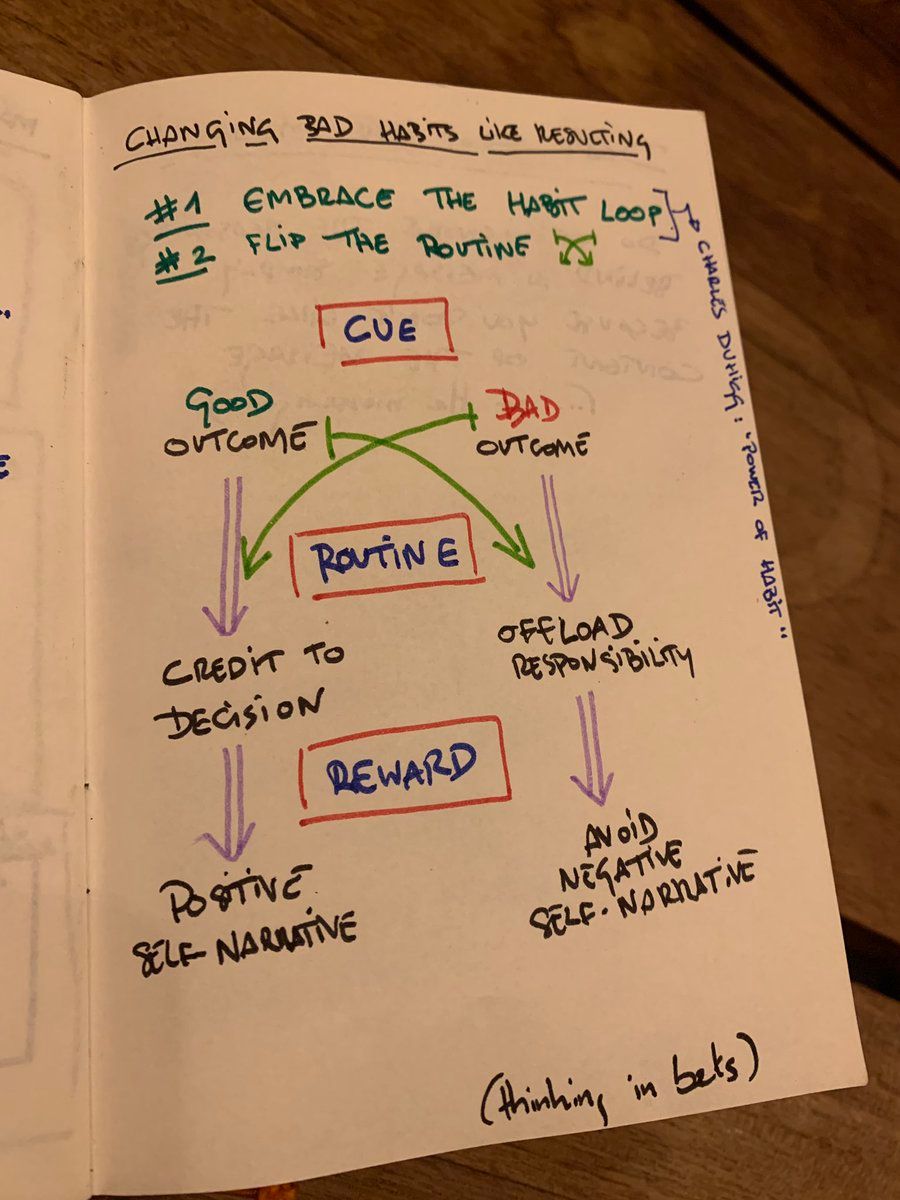 CHANGING BAD HABITS LIKE RESULTING
#1 EMBRACE THE HABIT LOOP
#2 FLIP THE ROUTINE
CHARLES DUHIGG: "POWER OF HABIT"
CUE
GOOD
OUTCOME
BAD
OUTCOME
ROUTINE
CREDIT TO
DECISION
OFFLOAD
RESPONSIBILITY
REWARD
POSITIVE
SELF-NARRATIVE
AVOID
NEGATIVE
SELF-NARRATIVE
(thinking in bets)